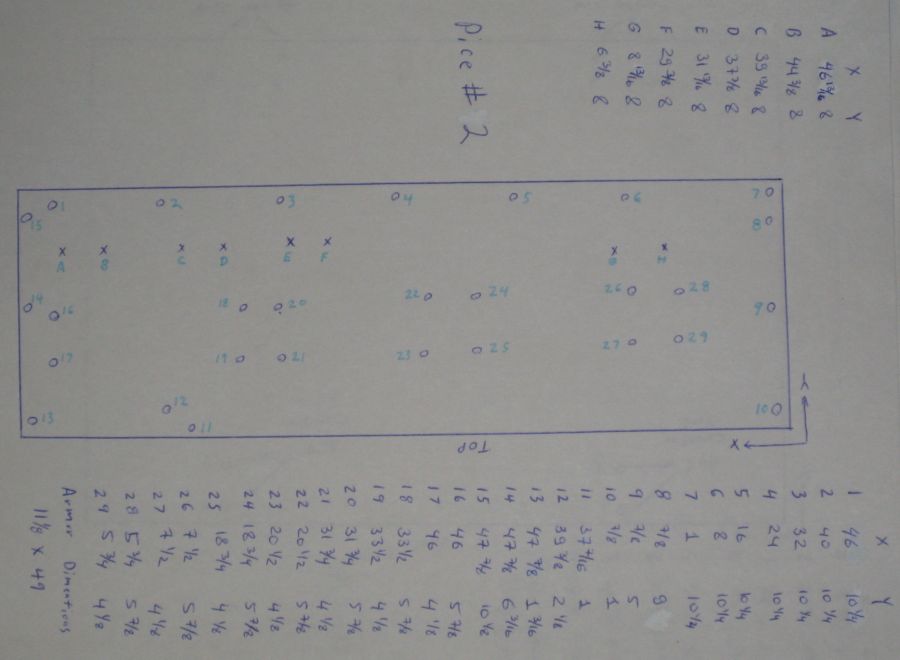 X Y
A 46 13/16 8
B 44 3/8 8
C 39 13/16 8
D 37 7/8 8
E 31 13/16 8
F 29 7/8 8
G 8 13/16 8
H 6 3/8 8
Pice # 2
1 2 3 4 5 6 7
15 8
A B C D E F G H
14 16 18 20 22 24 26 28 9
17 19 21 23 25 27 29
13 12 11 10
TOP
X Y
X Y
1 46 10 1/4
2 40 10 1/4
3 32 10 1/4
4 24 10 1/4
5 16 10 1/4
6 8 10 1/4
7 1 10 1/4
8 7/8 9
9 7/8 5
10 7/8 1
11 37 7/16 1
12 2 1/8
13 47 7/8 1 3/16
14 47 7/8 6 3/16
15 47 7/8 10 1/2
16 46 5 7/8
17 46 4 1/8
18 33 1/2 5 7/8
19 33 1/2 4 1/2
20 31 3/4 5 7/8
21 31 3/4 4 1/2
22 20 1/2 5 7/8
23 20 1/2 4 1/2
24 18 3/4 5 7/8
25 18 3/4 4 1/2
26 7 1/2 5 7/8
27 7 1/2 4 1/2
28 5 3/4 5 7/8
29 5 3/4 4 1/2
Armor Dimentions
11 1/8 X 49